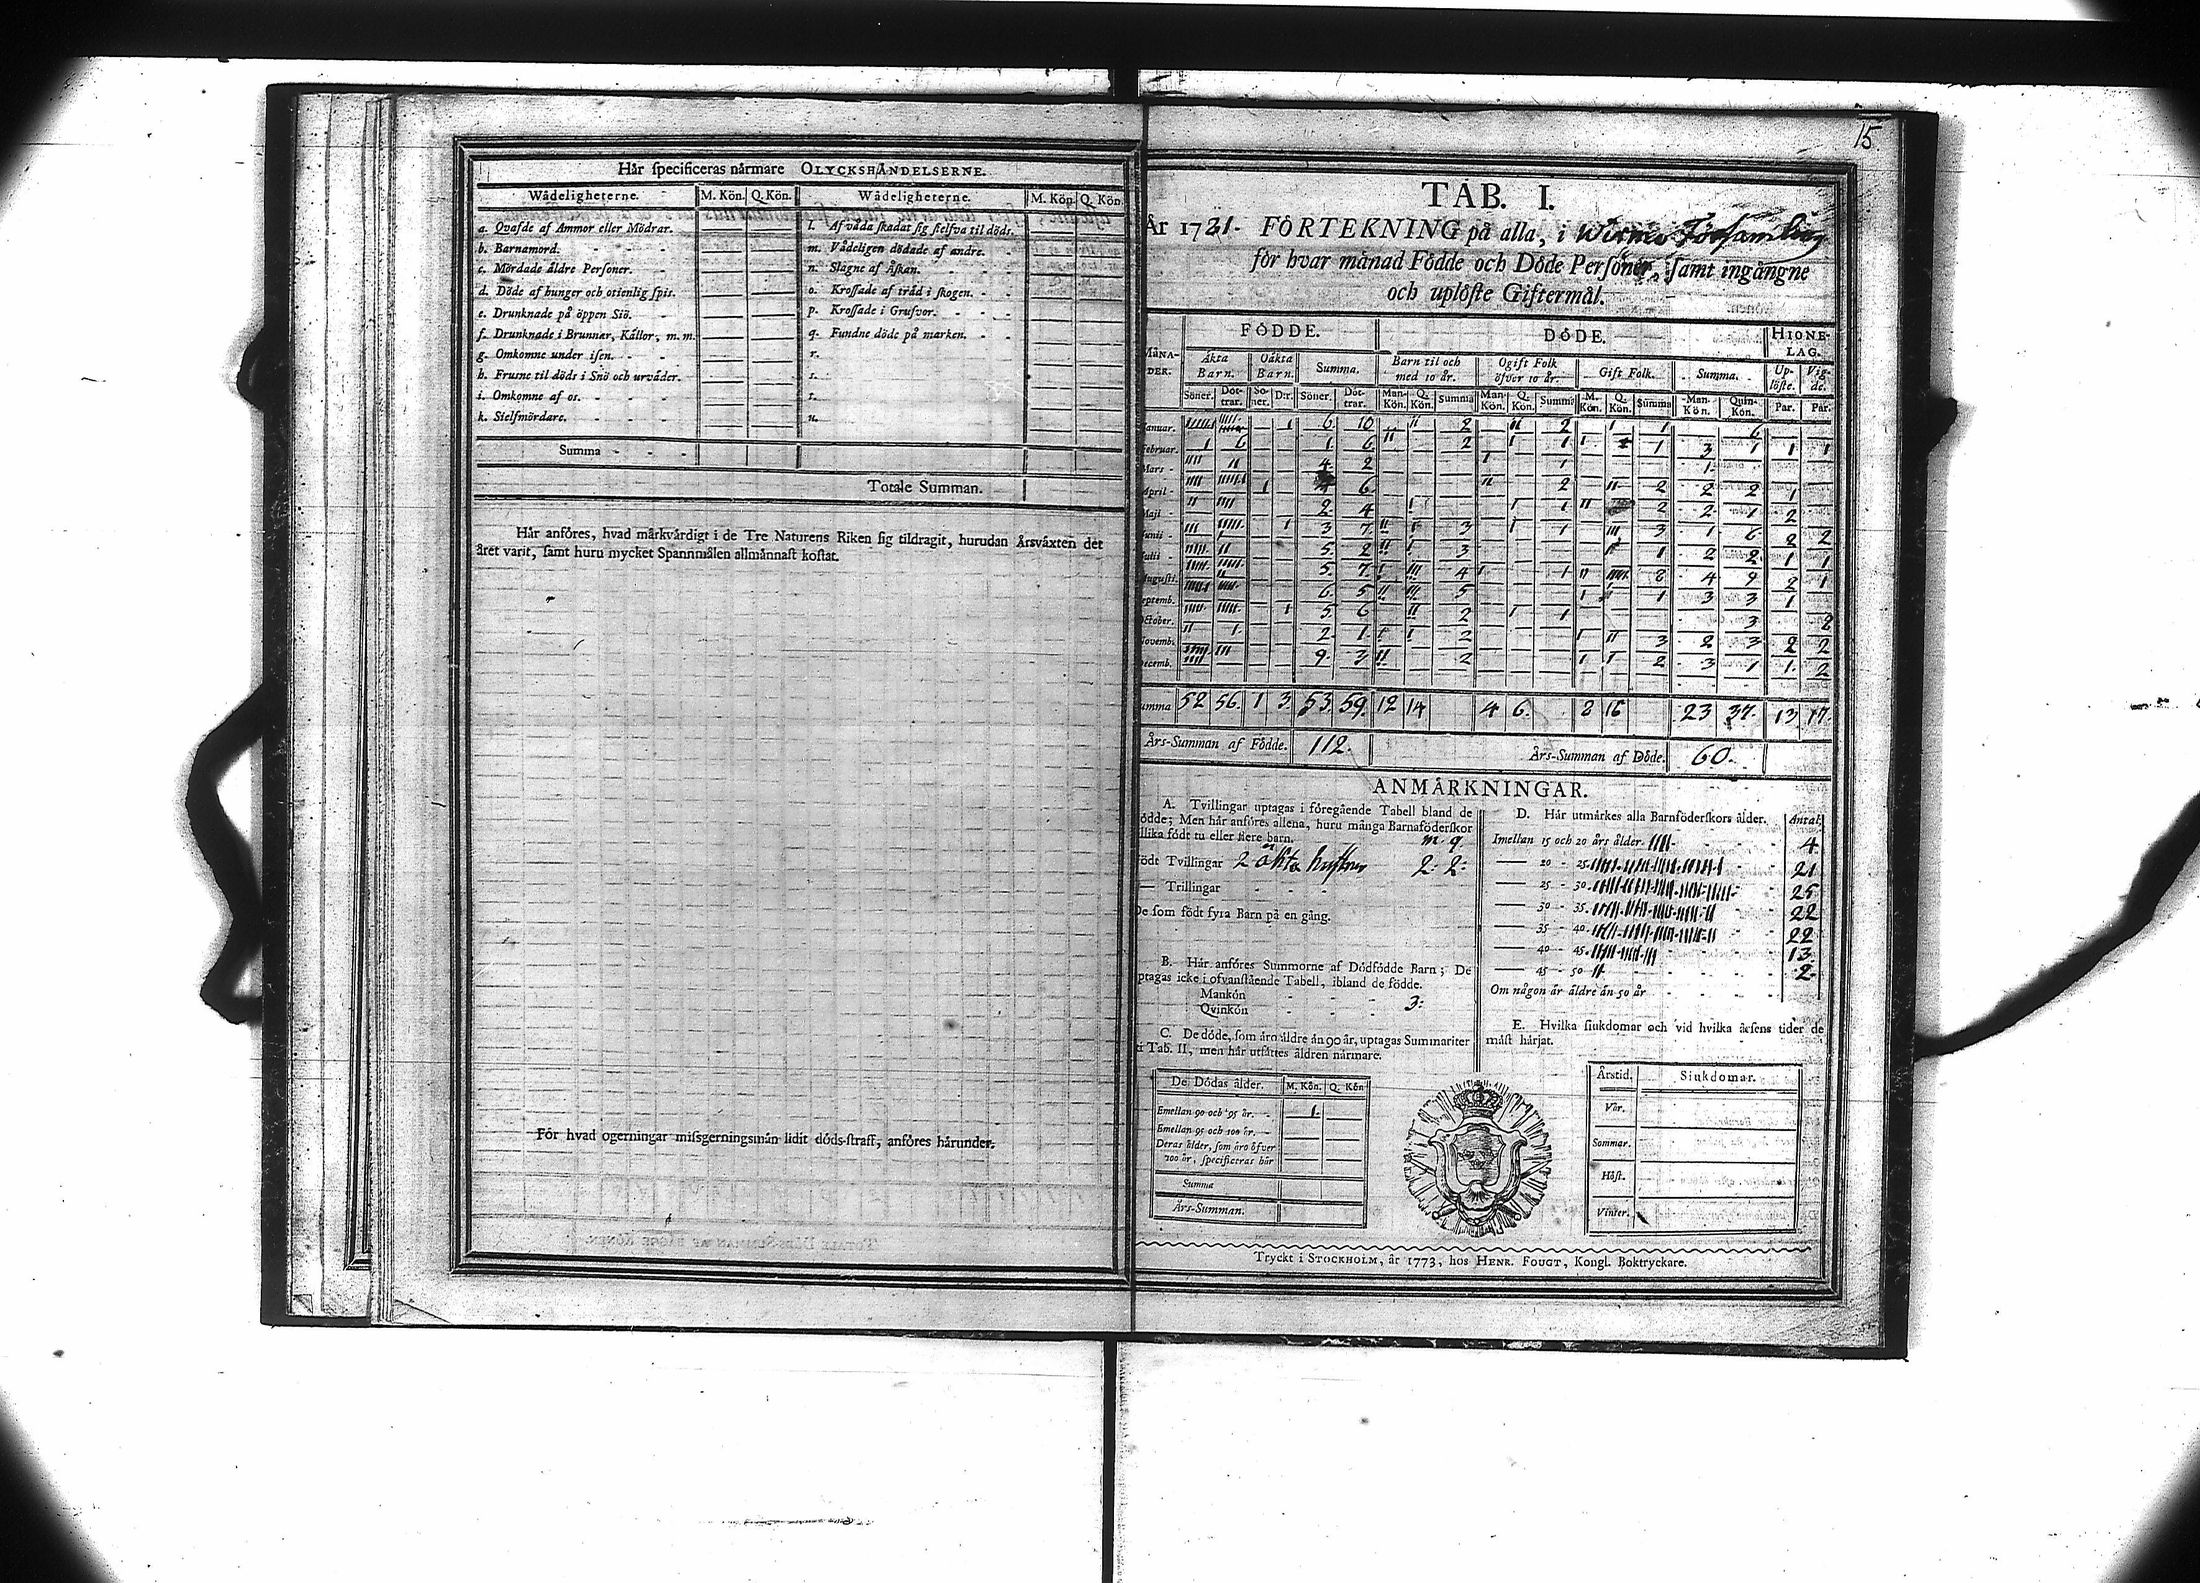 Hår ſpecificeras nårmare OLYCKSHÅNDELSERNE.
Wådeligheterne. M. Kön. Q. Kön. Wådeligheterne. M. Kön. Q. Kön.
a. Qvafde af Ammor eller Mödrar. l. Af våda ſkadat ſig ſielfva til döds.
b. Barnamord. m. Vådeligen dödade af andre.
c. Mördade äldre Perſoner. n. Slagne af Åſkan.
d. Döde af hunger och otienlig ſpis. o. Kroſſade af tråd i ſkogen.
e. Drunknade på öppen Siö. p. Kroſſade i Grufvor.
f. Drunknade i Brunnar, Källor, m. m. q. Fundne döde på marken.
g. Omkomne under iſen. r.
h. Fruſne til döds i Snö och urväder. s.
i. Omkomne af os. t.
k. Sielfmördare. u.
Summa
Totale Summan.
Hår anföres, hvad märkvärdigt i de Tre Naturens Riken ſig tildragit, hurudan Årsväxten det
året varit, ſamt huru mycket Spannmålen allmännaſt koſtat.
För hvad ogerningar miſsgerningsmän lidit döds-ſtraff, anföres hårunder.
15
TAB. I.
År 17 FÖRTEKNING på alla, i Förſamling
för hvar månad Födde och Döde Perſoner, ſamt ingångne
och uplöſte Giftermål.
FÖDDE. DÖDE. HIONE-
LAG.
MÅNA-
DER. Äkta
Barn. Oäkta
Barn. Summa. Barn til och
med 10 år. Ogift Folk
öfver 10 år. Gift Folk. Summa. Up-
löſte. Vig-
de.
Söner. Döt-
trar. So-
ner. D:r. Söner. Döt-
trar. Man-
Kön. Q.
Kön. Summa Man-
Kön. Q.
Kön. Summa M.
Kön. Q.
Kön. Summa Man-
Kön. Quin-
Kön. Par. Par.
Januar. 6 10 2 2 1 6
Februar. 1 6 1 6 2 1 1 3 1 1 1
Mars 4 2 1 1
April 6 2 2 2 2 1
Maji 2 4 1 2 2 1 2
Junii 3 7 3 1 3 1 6 2 2
Julii 5 2 3 1 2 2 1 1
Auguſti. 5 7 4 1 8 4 9 2 1
Septemb. 6 5 5 1 3 3 1
October. 5 6 2 1 3 2
Novemb. 2 1 2 3 2 3 2 2
Decemb. 9 3 2 2 3 1 1 2
Summa 52 56. 1 3. 53. 59. 12 14 4 6. 8 16 23 37. 13 17.
Års-Summan af Födde. 112. Års-Summan af Döde. 60.
ANMÄRKNINGAR.
A. Tvillingar uptagas i föregående Tabell bland de
födde; Men hår anföres allena, huru många Barnaföderſkor
tillika födt tu eller flere barn. m. q.
födt Tvillingar 2 äkta 2. 2.
— Trillingar
De ſom födt fyra Barn på en gång.
B. Hår anföres Summorne af Dödfödde Barn; De
uptagas icke i ofvanſtående Tabell, ibland de födde.
Mankön
Qvinkön 3.
C. De döde, ſom äro äldre än 90 år, uptagas Summariter
i Tab. II, men hår utſättes åldren närmare.
De Dödas ålder. M. Kön. Q. Kön
Emellan 90 och 95 år. 1.
Emellan 95 och 100 år.
Deras ålder, ſom äro öfver
100 år, ſpecificeras hår
Summa
Års-Summan.
D. Hår utmärkes alla Barnföderſkors ålder. Antal.
Imellan 15 och 20 års ålder. 4
20 - 25. 21
25 - 30. 25
30 - 35. 22
35 - 40. 22
40 - 45. 13
45 - 50 2
Om någon är äldre än 50 år
E. Hvilka ſiukdomar och vid hvilka årſens tider de
måſt härjat.
Årstid. Siukdomar.
Vår.
Sommar.
Höſt.
Vinter.
Tryckt i STOCKHOLM, år 1773, hos HENR. FOUGT, Kongl. Boktryckare.